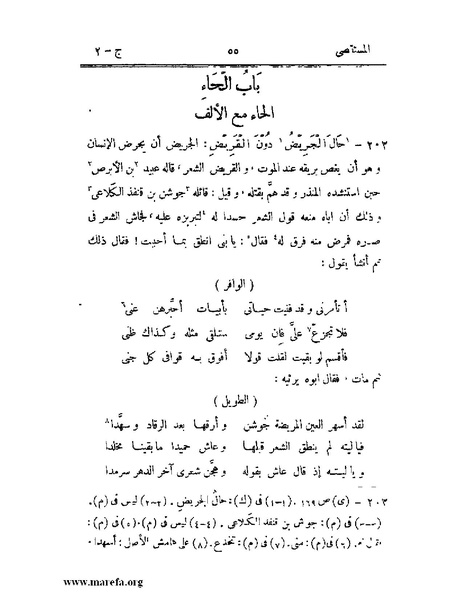 المستقصى ٥٥ ج - ٢
بَابُ الْحَاءِ
الحاء مع الألف
٢٠٣ - ١حَالَ الْجَرِيْضُ١ دُوْنَ الْقَرِيْضِ: الجريض أن يجرض الإنسان
و هو أن يغص بريقه عند الموت، و القريض الشعر، قاله عبيد ٢بن الأبرص٢
حين استنشده المنذر و قد همَّ بقتله، و قيل: قائله ٣جوشن بن قنفذ الكلاعي٣
و ذلك أن اباه منعه قول الشعر حسدا له ٤لتبريزه عليه، فجاش الشعر فى
صدره فمرض منه فرق له٤ فقال٥: يا بنى انطق بما أحببت! فقال ذلك
ثم أنشأ يقول:
( الوافر )
أ تأمرنى و قد فنيت حياتى بأبيات أحبّرهن عنى٦
فلا تجزع٧ علىّ فان يومى ستلقى مثله و كذاك ظنى
فأقسم لو بقيت لقلت قولا أفوق به قوافى كل جنى
ثم مات، فقال ابوه يرثيه:
( الطويل )
لقد أسهر العين المريضة جوشن و أرقها بعد الرقاد و سهَّدا٨
فيا ليته لم ينطق الشعر قبلها و عاش حميدا ما بقينا مخلدا
و يا ليته إذ قال عاش بقوله و هجَّن شعرى آخر الدهر سرمدا
٢٠٣ - (ى) ص ١٦٩. (١-١) فى (ك): حال الجريض. (٢-٢) ليس فى (م).
(٣-٣) فى (م): جوش بن قنفد الكلاعى. (٤-٤) ليس فى (م). (٥) فى (م):
(٦) فى (م): منى. (٧) فى (م): تنخدع. (٨) على هامش الأصل: أسهدا.
www.marefa.org